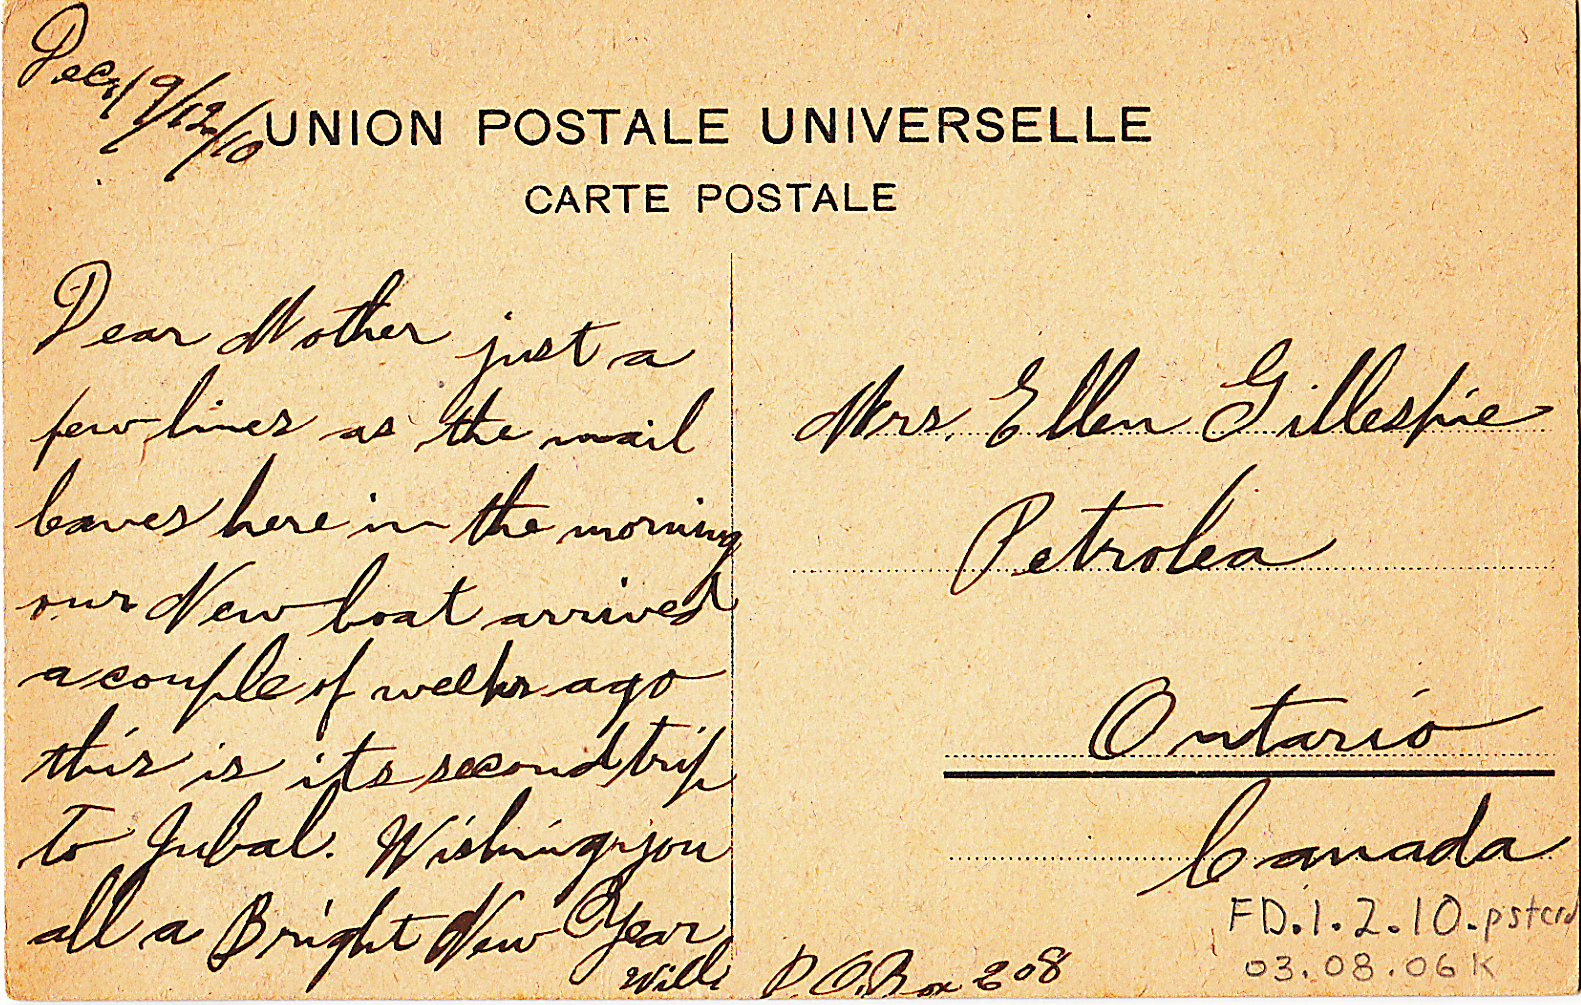 Dec, 19/12/10
UNION POSTALE UNIVERSELLE
CARTE POSTALE
Dear Mother just a
few lines as the mail
leaves here in the morning
our New boat arrived
a couple of weeks ago
this is its second trip
to Jubal. Wishing you
all a Bright New Year
Will
Mrs. Ellen Gillespie
Petrolea
Ontario
Canada
P.O. Box 208
FD.1.2.10.pstcrd
03.08.06 K